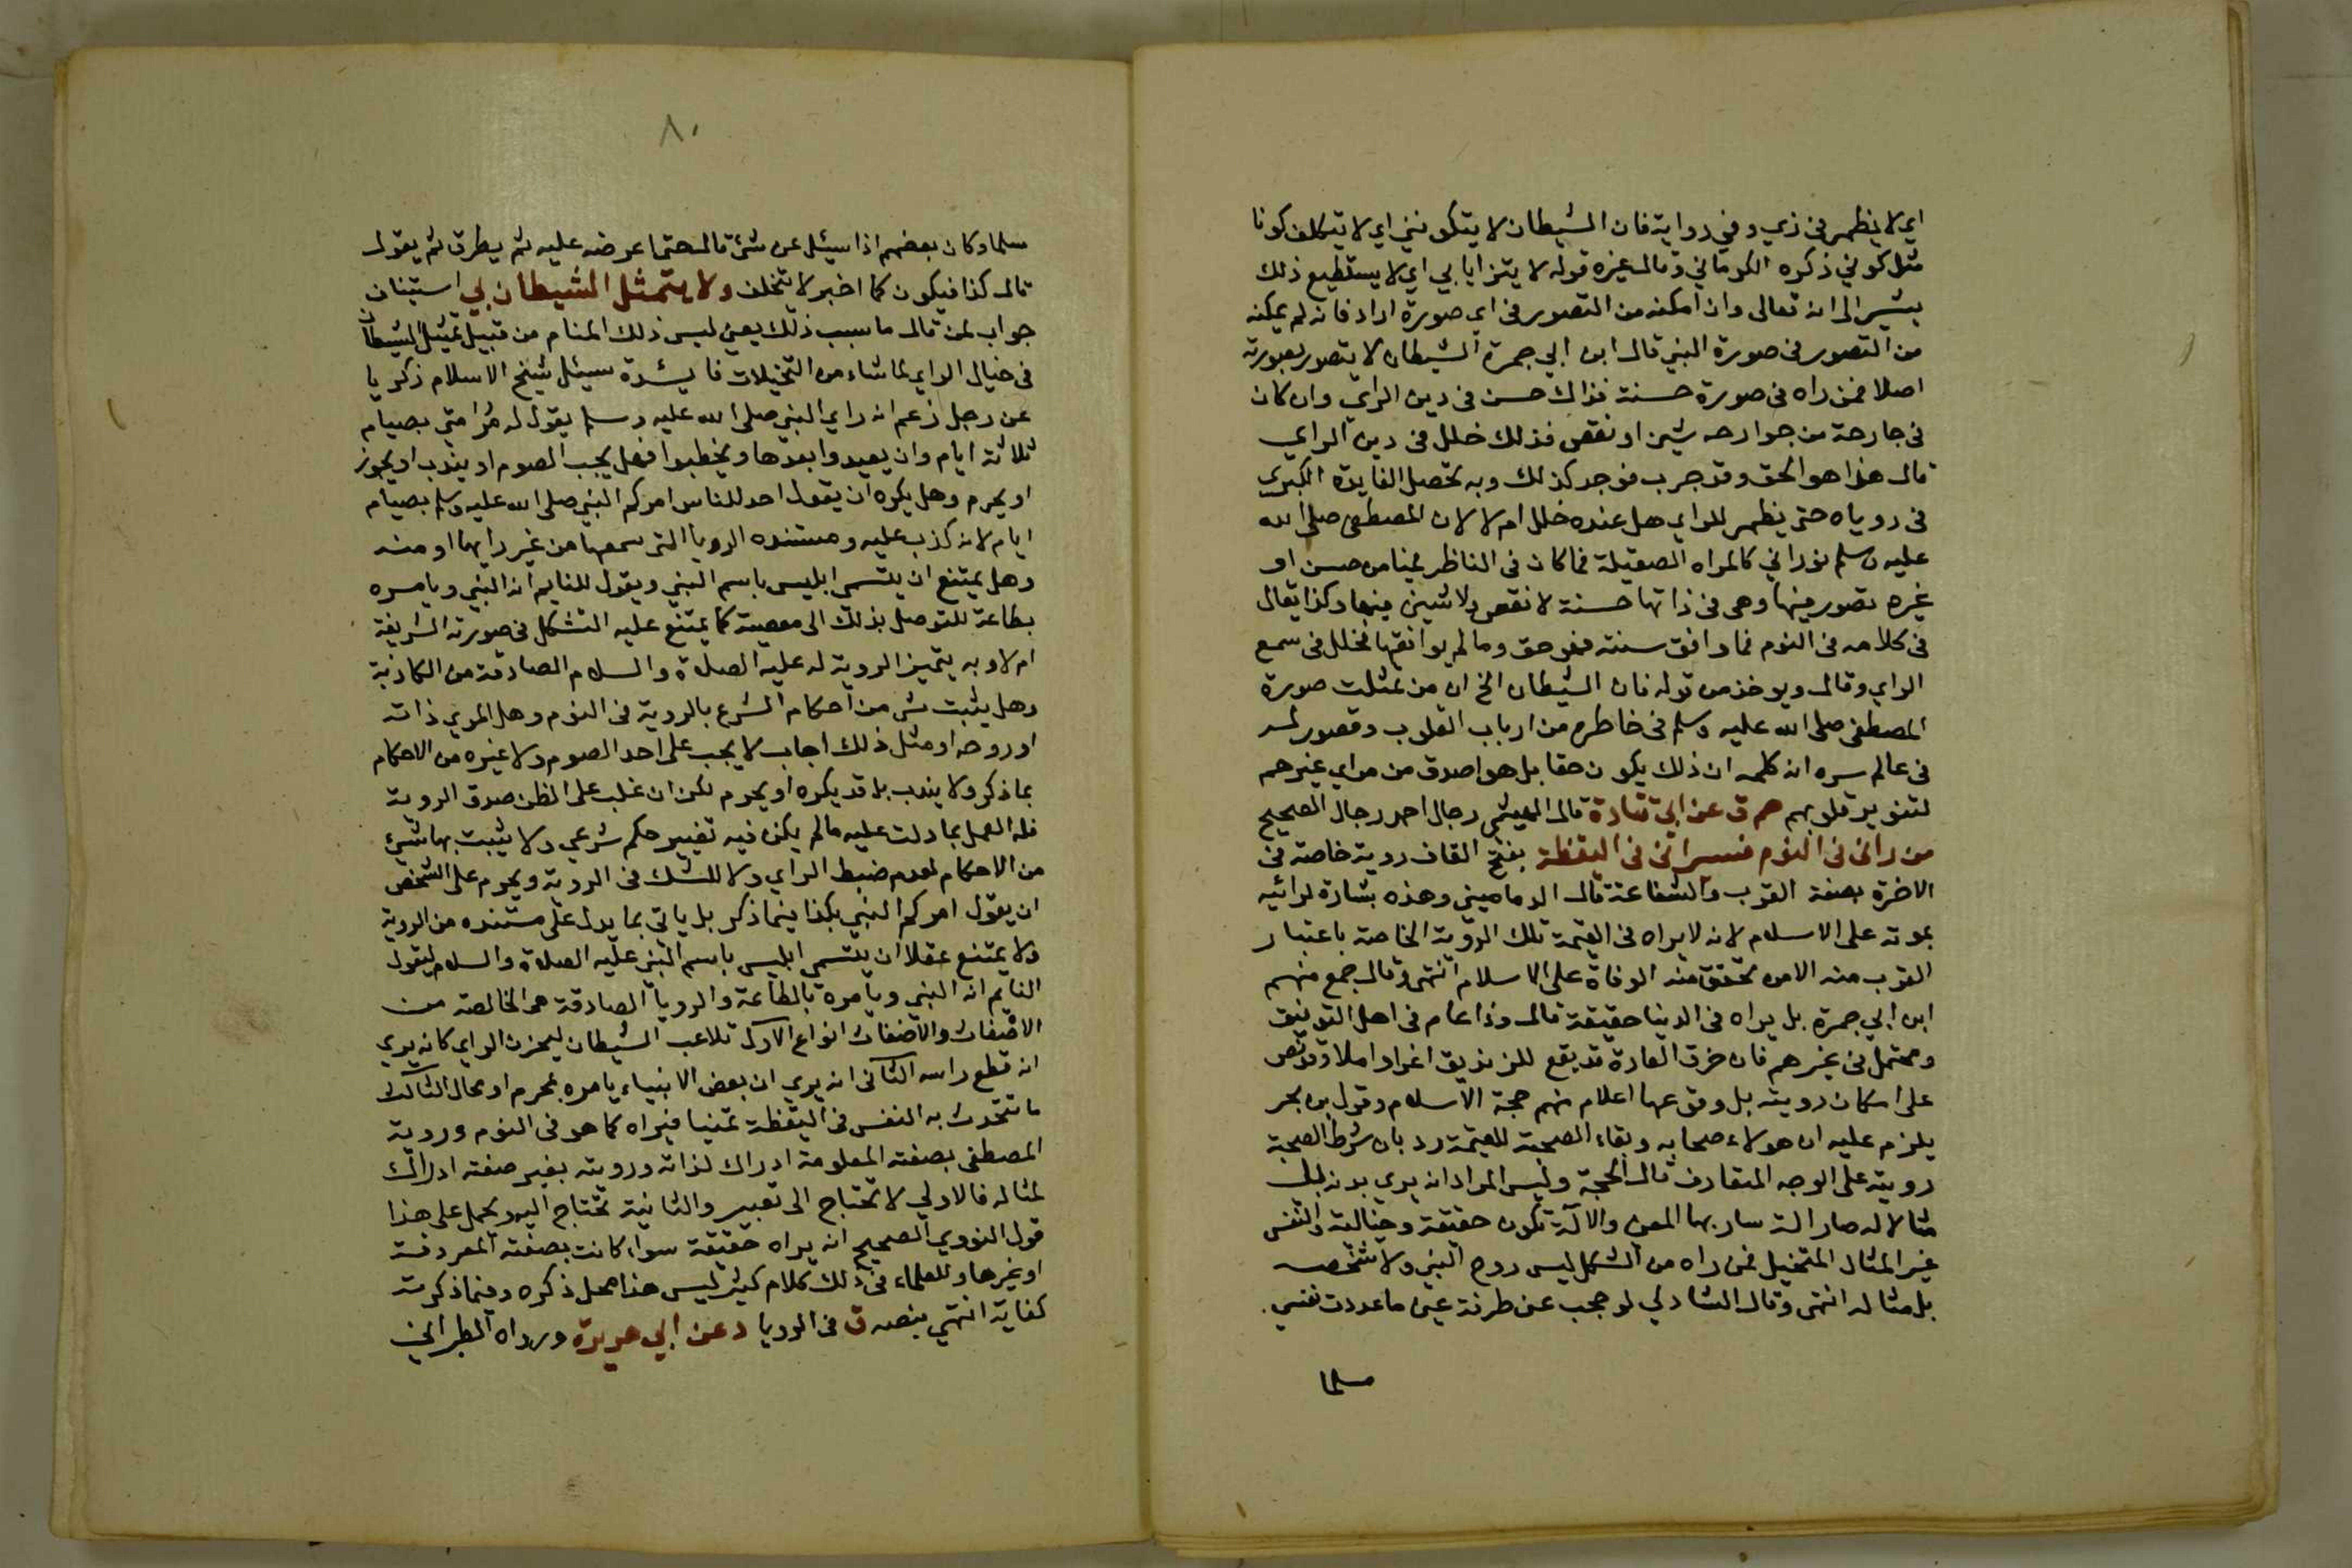 اي لا يظهر في زي وفي رواية فان الشيطان لا يتكونني اي لا يتكلف كونا
مثل كوني ذكره الكرماني وقال غيره قوله لا يتزايا بي اي لا يستطيع ذلك
يشير الى انه تعالى وان امكنه من التصور في اي صورة اراد فانه لم يمكنه
من التصور في صورة النبي قال ابن ابي جمرة الشيطان لا يتصور بصورته
اصلا فمن راه في صورة حسنة فذاك حسن في دين الراي وان كان
في جارحة من جوارحه شين او نقص فذلك خلل في دين الراي
قال هذا هو الحق وقد جرب فوجد كذلك وبه تحصل الفايدة الكبرى
في روياه حتى يظهر للراي هل عنده خلل ام لا لان المصطفى صلى الله
عليه وسلم نوراني كالمراه الصقيلة فما كان في الناظر فيها من حسن او
غيره تصور فيها وهي في ذاتها حسنة لا نقص ولا شين فيها وكذا يقال
في كلامه في النوم فما وافق سنته فهو حق وما لم يوافقها فخلل في سمع
الراي وقال ويوخذ من قوله فان الشيطان الخ ان من تمثلت صورة
المصطفى صلى الله عليه وسلم في خاطره من ارباب القلوب وتصور له
في عالم سره انه كلمه ان ذلك يكون حقا بل هو اصدق من مراي غيرهم
لتنوير قلوبهم حم ق عن ابي قتادة قال الهيثمي رجال احمد رجال الصحيح
من راني في النوم فسيراني في اليقظة بفتح القاف روية خاصة في
الاخرة بصفة القرب والشفاعة قال الدماميني وهذه بشارة لرائيه
بموته على الاسلام لانه لا يراه في القيمة تلك الروية الخاصة باعتبار
القرب منه الا من تحقق منه الوفاة على الاسلام انتهى وقال جمع منهم
ابن ابي جمرة بل يراه في الدنيا حقيقة قال وذا عام في اهل التوفيق
ومحتمل في غيرهم فان خرق العادة قد يقع للزنديق اغرا واملا وقد نص
على امكان رويته بل وقوعها اعلام منهم حجة الاسلام وقول بن حجر
يلزم عليه ان هولاء صحابه وبقاء الصحبة للقيمة رد بان شرط الصحبة
رويته على الوجه المتعارف قال الحجة وليس المراد انه يرى بدنه بل
مثالا له صار الة سار بها المعنى والالة تكون حقيقة وخيالية والنفس
غير المثال المتخيل فمن راه من الشكل ليس روح النبي ولا شخصه
بل مثاله انتهى وقال الشادلي لو حجب عني طرفة عين ما عددت نفسي
مسلما
٨٠
مسلما وكان بعضهم اذا سيئل عن شئ قال حتى اعرضه عليه ثم يطرق ثم يقول
قال كذا فيكون كما اخبر لا يتخلف ولا يتمثل الشيطان بي استيناف
جواب لمن قال ما سبب ذلك يعني ليس ذلك المنام من قبيل تمثيل الشيطان
في خيال الراي بما شاء من التخيلات فايئدة سيئل شيخ الاسلام زكريا
عن رجل زعم انه راي النبي صلى الله عليه وسلم يقول له مر امتي بصيام
ثلاثة ايام وان يعيدوا بعدها ويخطبوا فهل يجب الصوم او يندب او يجوز
او يحرم وهل يكره ان يقول احد للناس امركم النبي صلى الله عليه وسلم بصيام
ايام لانه كذب عليه ومستنده الرويا التي سمعها من غير رايها او منه
وهل يمتنع ان يتسمى ابليس باسم النبي ويقول للنايم انه النبي ويامره
بطاعة للتوصل بذلك الى معصية كما يمتنع عليه التشكل في صورته الشريفة
ام لا وبه يتميز الروية له عليه الصلاة والسلام الصادقة من الكاذبة
وهل يثبت شي من احكام الشرع بالروية في النوم وهل المري ذاته
او روحه او مثل ذلك اجاب لا يجب على احد الصوم ولا غيره من الاحكام
بما ذكر ولا يندب بل قد يكره او يحرم لكن ان غلب على الظن صدق الروية
فله العمل بما دلت عليه ما لم يكن فيه تغيير حكم شرعي ولا يثبت بها شئ
من الاحكام لعدم ضبط الراي ولا للشك في الروية ويحرم على الشخص
ان يقول امركم النبي بكذا فيما ذكر بل ياتي بما يدل على مستنده من الروية
ولا يمتنع عقلا ان يتسمى ابليس باسم النبي عليه الصلاة والسلام ليقول
النايم انه النبي ويامره بالطاعة والرويا الصادقة هي الخالصة من
الاضغاث والاضغاث انواع الاول تلاعب الشيطان ليحزن الراي كانه يري
انه قطع راسه الثاني انه يري ان بعض الانبياء يامره بمحرم او محال الثالث
ما تتحدث به النفس في اليقظة تمنيا فيراه كما هو في النوم وروية
المصطفى بصفته المعلومة ادراك لذاته ورويته بغير صفته ادراك
لمثاله فالاولي لا تحتاج الى تعبير والثانية تحتاج اليه ويحمل على هذا
قول النووي الصحيح انه يراه حقيقة سواء كانت بصفته المعروفة
او غيرها وللعلماء في ذلك كلام كثير ليس هذا محل ذكره وفيما ذكرته
كفاية انتهي بنصه ق في الرويا د عن ابي هريرة ورواه الطبراني